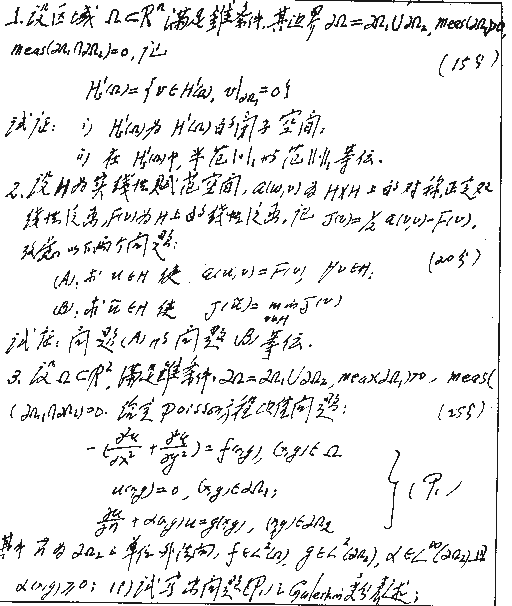 1. 设区域 Ω⊂Rⁿ 满足锥条件, 其边界 ∂Ω=∂Ω₁∪∂Ω₂, meas(∂Ω₁)>0,
meas(∂Ω₁∩∂Ω₂)=0, 记
(15分)
H¹ₛ(Ω)={v∈H¹(Ω), v|∂Ω₁=0}
试证: i) H¹ₛ(Ω)为 H¹(Ω)的闭子空间;
ii) 在 H¹ₛ(Ω)中, 半范|·|₁与范‖·‖₁等价.
2. 设H为实线性赋范空间, a(u,v)为H×H上的对称正定双
线性泛函, F(v)为H上的线性泛函, 记 J(v)=½a(v,v)-F(v).
考虑以下两个问题:
(20分)
(A). 求 u∈H 使 a(u,v)=F(v), ∀v∈H;
(B). 求 u∈H 使 J(u)=min J(v)
v∈H
试证: 问题(A)与问题(B)等价.
3. 设Ω⊂R², 满足锥条件. ∂Ω=∂Ω₁∪∂Ω₂, meas(∂Ω₁)>0, meas(
(∂Ω₁∩∂Ω₂)=0. 给定 Poisson方程边值问题:
(25分)
-(∂²u/∂x² + ∂²u/∂y²)=f(x,y), (x,y)∈Ω
u(x,y)=0, (x,y)∈∂Ω₁;
∂u/∂n + α(x,y)u=g(x,y), (x,y)∈∂Ω₂
} (P₁)
其中 n为∂Ω₂上单位外法向, f∈L²(Ω), g∈L²(∂Ω₂), α∈L^∞(∂Ω₂)且
α(x,y)≥0; (1)试写出问题(P₁)之Galerkin变分表述;